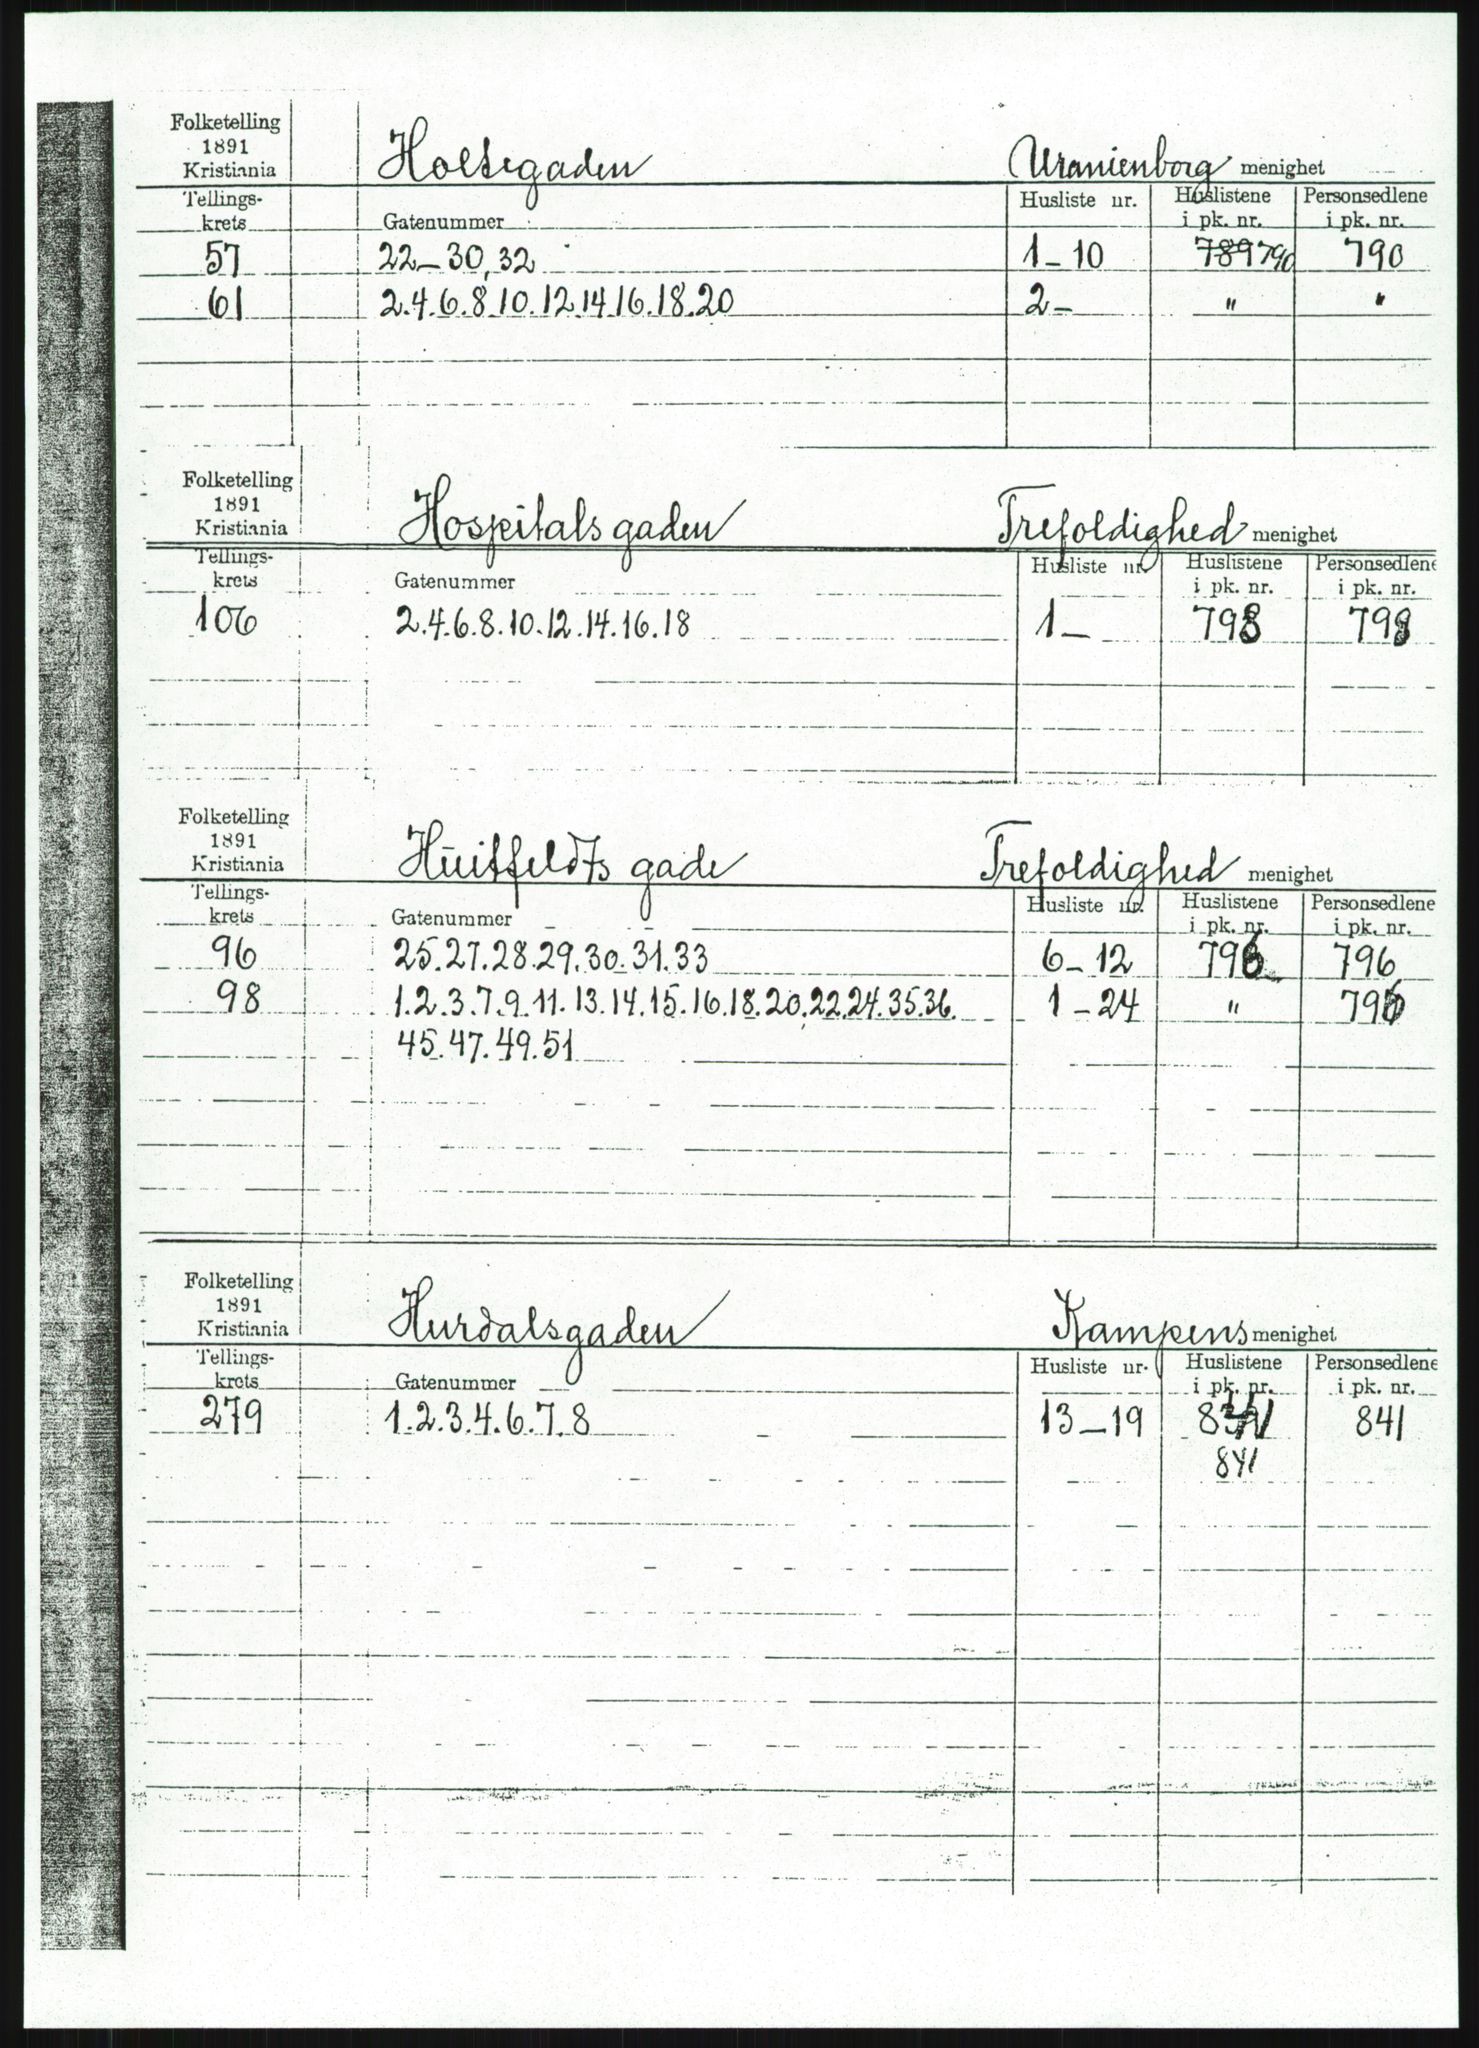 Folketelling
1891
Kristiania Holtegaden Uranienborg menighet
Tellings-
krets Gatenummer Husliste nr. Huslistene i pk. nr. Personsedlene i pk. nr.
57 22-30, 32 1-10 789 790 790
61 2.4.6.8.10.12.14.16.18.20 2- " "
Folketelling
1891
Kristiania Hospitalsgaden Trefoldighed menighet
Tellings-
krets Gatenummer Husliste nr. Huslistene i pk. nr. Personsedlene i pk. nr.
106 2.4.6.8.10.12.14.16.18 1-
Folketelling
1891
Kristiania Huitfeldts gade Trefoldighed menighet
Tellings-
krets Gatenummer Husliste nr. Huslistene i pk. nr. Personsedlene i pk. nr.
96 25.27.28.29.30.31.33 6-12 796 796
98 1.2.3.7.9.11.13.14.15.16.18.20.22.24.35.36. 1-24 " 796
45.47.49.51
Folketelling
1891
Kristiania Hurdalsgaden Kampens menighet
Tellings-
krets Gatenummer Husliste nr. Huslistene i pk. nr. Personsedlene i pk. nr.
279 1.2.3.4.6.7.8 13-19 841
841